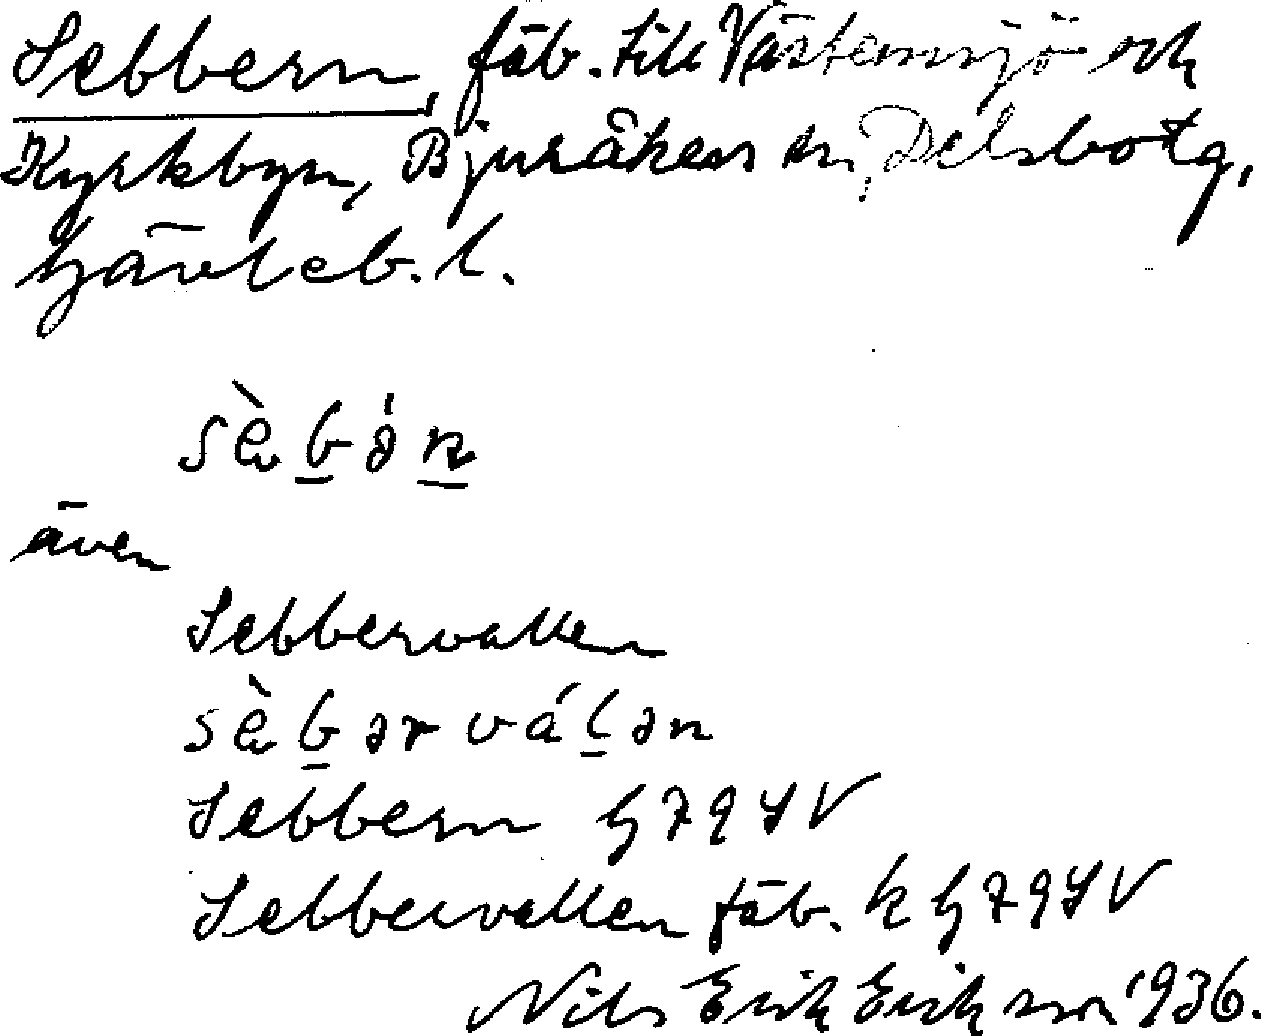 Sebbern, fäb. till Västansjö och
Kyrkbyn, Bjuråkers sn, Delsbo tg,
Gävleb. l.
sè̀bə́n
även
Sebbervallen
sè̀bərválən
Sebbern G 79 SV
Sebbervallen fäb. k G 79 SV
Nils Erik Eriksson 1936.